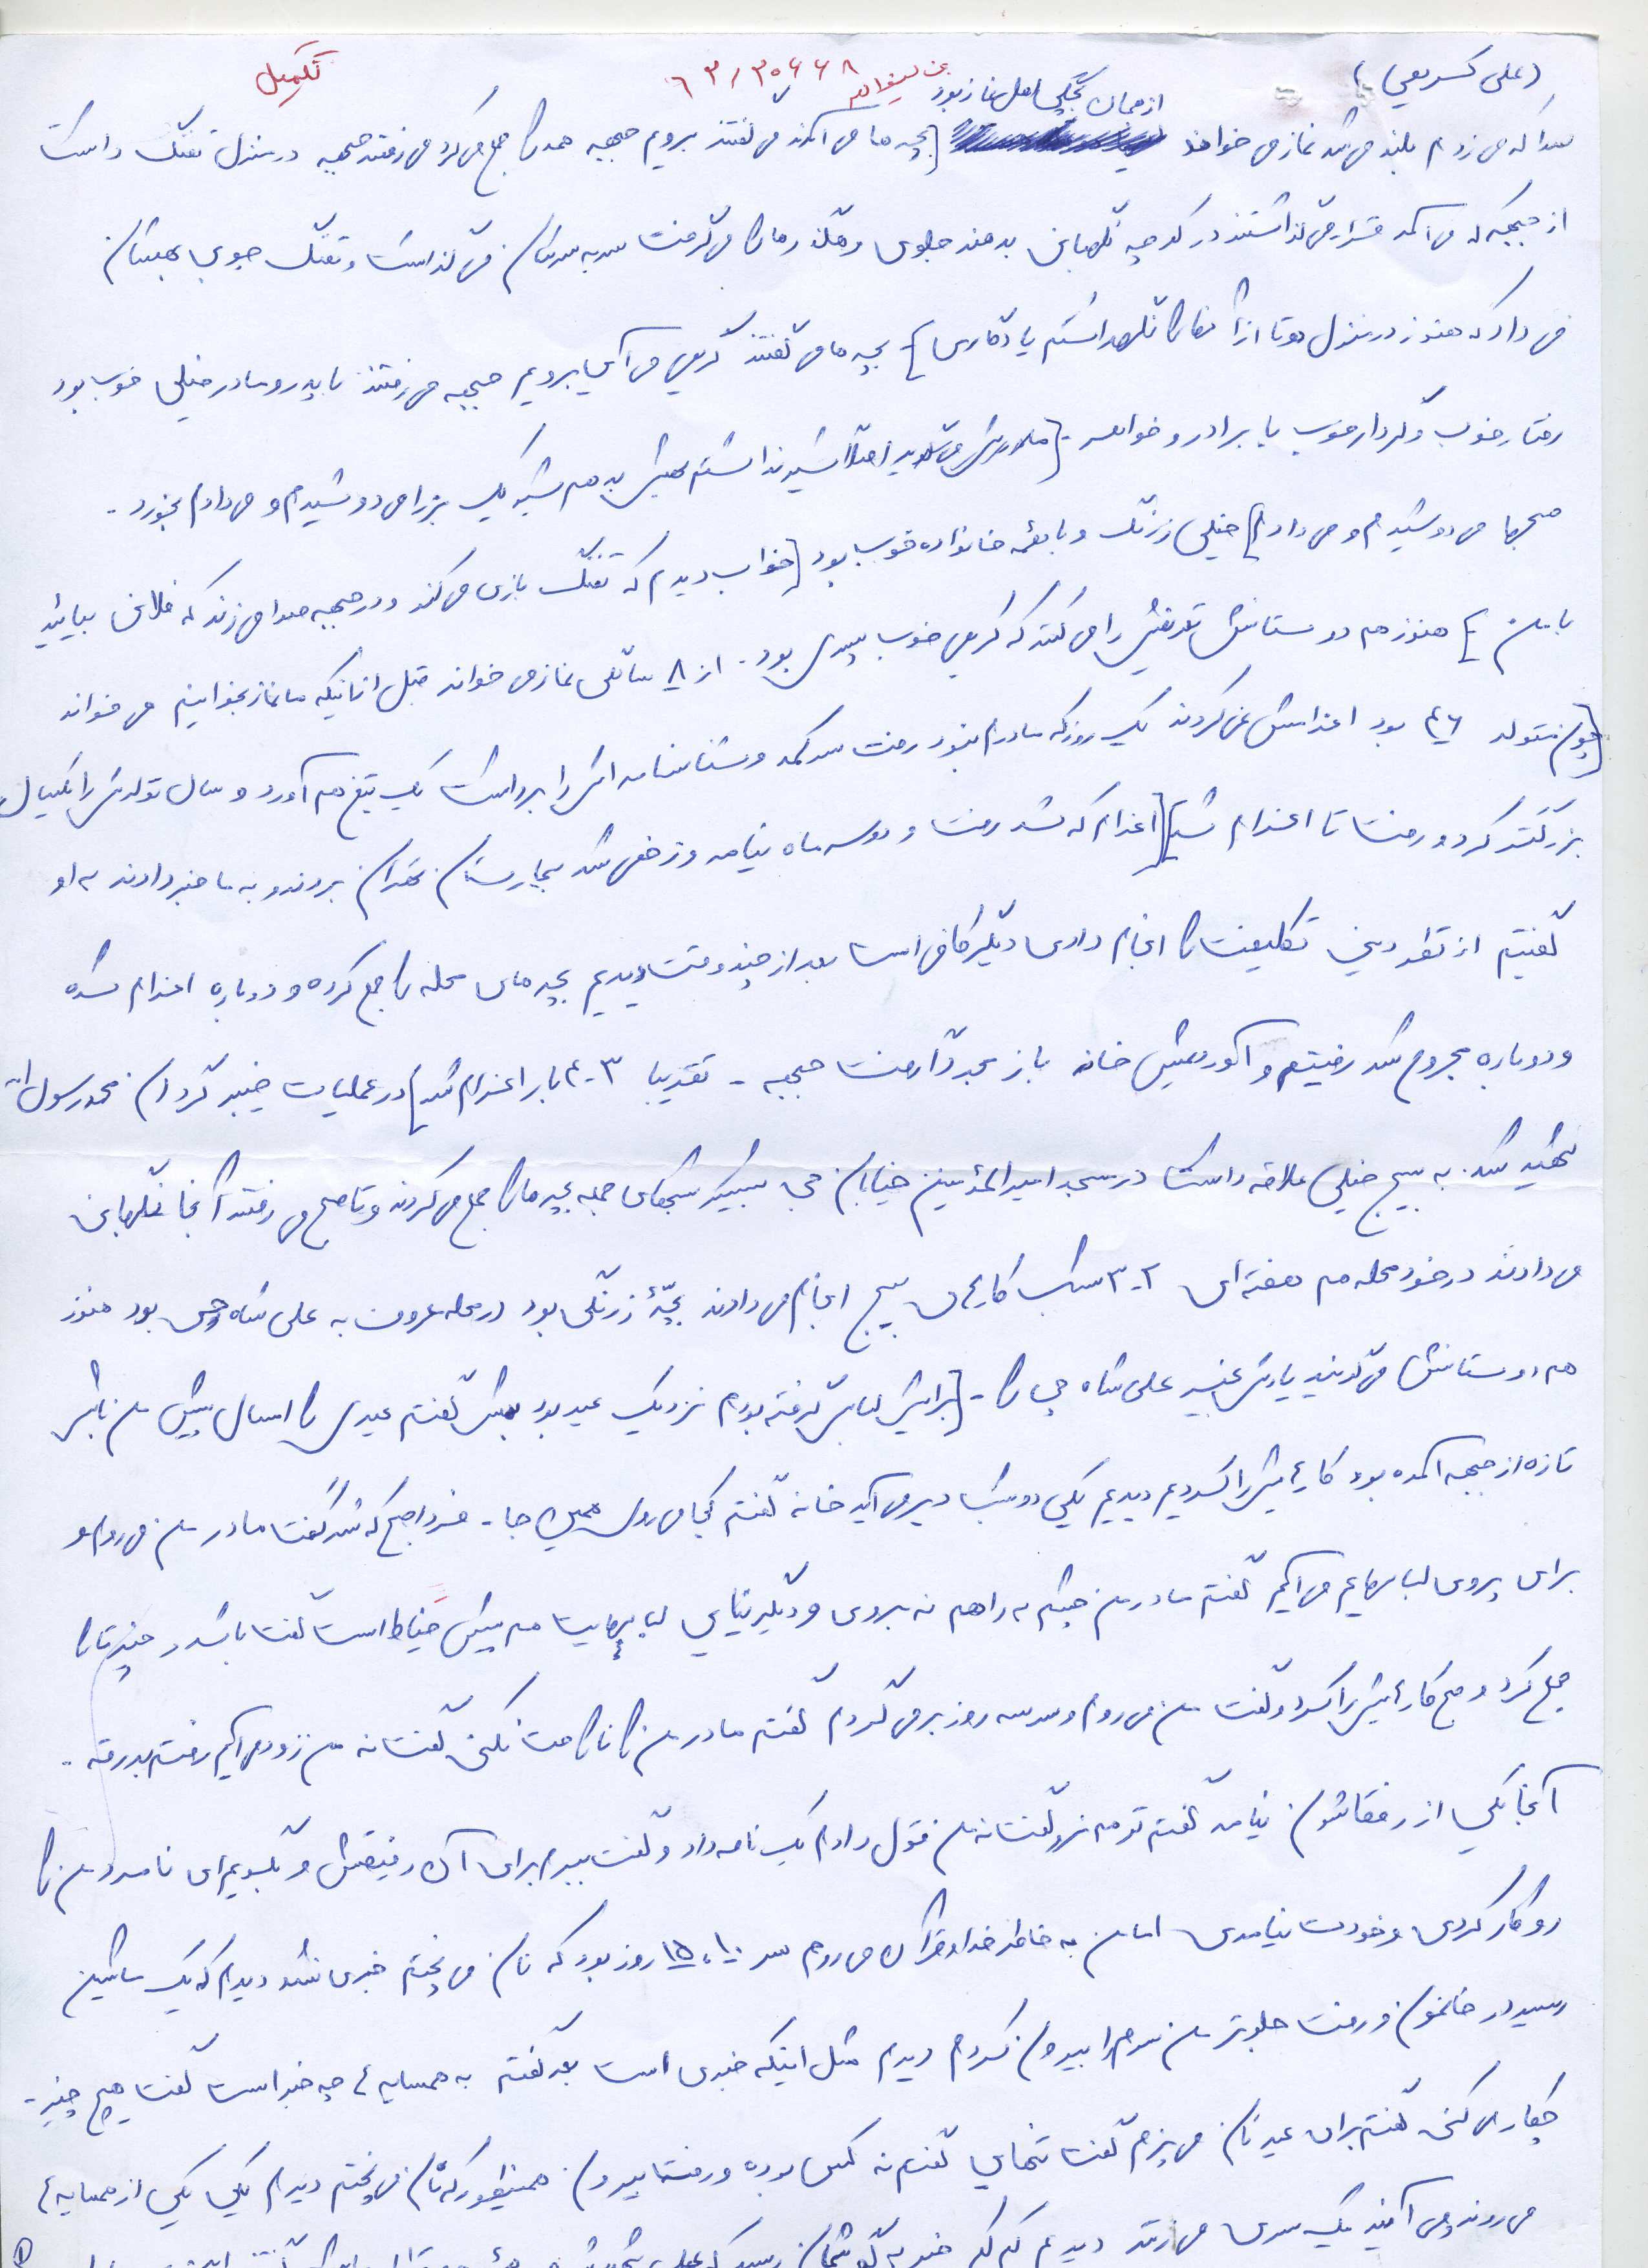 (علی کریمی)
تکمیل
از همان بچگی اهل نماز بود
صدا که می‌زدم بلند می‌شد نماز می‌خواند [بچه‌ها می‌آمدند می‌گفتند برویم جبهه همه را جمع می‌کرد می‌رفتند جبهه در منزل تفنگ داشت
از جبهه که می‌آمد قرار می‌گذاشتند در کوچه نگهبانی بدهند جلوی رهگذرها را می‌گرفت سر به سرشان می‌گذاشت و تفنگ چوبی بهشان
می‌داد که هنوز در منزل دو تا از آنها را نگهداشتم یادگاری] بچه‌ها می‌گفتند کریمی می‌آیی برویم جبهه می‌رفتند با پدر و مادر خیلی خوب بود
رفتار خوب و کردار خوب با برادر و خواهر - [مادرش می‌گوید اصلاً شیر نداشتم بهش بدهم شیر یک بز را می‌دوشیدم و می‌دادم بخورد -
صبحها می‌دوشیدم و می‌دادم] خیلی زرنگ و با بقیه خانواده خوب بود [خواب دیدم که تفنگ بازی می‌کند و در جبهه صدا می‌زند که فلانی بیایید
با من] هنوز هم دوستانش تعریفش را می‌کنند که کریمی خوب پسری بود. از ۸ سالگی نماز می‌خواند قبل از اینکه ما نماز بخوانیم می‌خواند
[چون متولد ۴۶ بود اعزامش نمی‌کردند یک روز که مادرم نبود رفت سر کمد و شناسنامه‌اش را برداشت یک تیغ هم آورد و سال تولدش را یکسال
بزرگتر کرد و رفت تا اعزام شد] [اعزام که شد رفت و دو سه ماه نیامد و زخمی شد بیمارستان تهران بردند و به ما خبر دادند به او
گفتیم از نظر دینی تکلیفت را انجام دادی دیگر کافی است بعد از چند وقت دیدیم بچه‌های محله را جمع کرده و دوباره اعزام شده
و دوباره مجروح شد رفتیم و آوردیمش خانه باز مجدداً رفت جبهه - تقریبا ۳-۴ بار اعزام شد] در عملیات خیبر گردان محمد رسول الله
شهید شد. به بسیج خیلی علاقه داشت در مسجد امیرالمؤمنین خیابان شبهای جمعه بچه‌ها را جمع می‌کردند و تا صبح می‌رفتند آنجا نگهبانی
می‌دادند در خود محله هم هفته‌ای ۲-۳ شب کارهای بسیج انجام می‌دادند بچهٔ زرنگی بود در محله معروف به علی شاه بود هنوز
هم دوستانش می‌گویند یادش بخیر علی شاه را - [برایش لباس گرفته بودم نزدیک عید بود بهش گفتم عیدی را امسال پیش من باش
تازه از جبهه آمده بود کارهایش را کرد دیدیم یکی دو شب دیر می‌آید خانه گفتم کجا می‌روی همین جا - فردا صبح که شد گفت مادر من می‌روم و
برای پروی لباسهایم می‌آیم گفتم مادر من چشم به راهم نه بروی و دیگر نیایی لباسهایت هم پیش خیاط است گفت باشد و چند تا را
جمع کرد و صبح کارهایش را کرد و گفت من می‌روم و سر سه روز برمی‌گردم گفتم مادر من را ناراحت نکنی گفت نه من زود می‌آیم رفتم بدرقه -
آنجا یکی از رفقاشون نیامد گفتم تو هم نرو گفت نه من قول دادم یک نامه داد و گفت ببر برای آن رفیقش و بگو ای نامرد من را
رو کار کردی و خودت نیامدی اما من به خاطر خدا و قرآن می‌روم سر ۱۰، ۱۵ روز بود که نان می‌پختم خبری نشد دیدم که یک ماشین
رسید در خانمون و رفت جلوتر من سرم را بیرون کردم دیدم مثل اینکه خبری است بعد گفتم به همسایه‌ها چه خبر است گفت هیچ چیز -
چکار می‌کنی گفتم برای عید نان می‌پزم گفت تنهایی گفتم نه کسی بوده و رفت بیرون همینطور که نان می‌پختم دیدم یکی یکی از همسایه‌ها
می‌روند می‌آیند یک سری می‌زنند دیدم کم کم خبر به گوشمان رسید که علی شهید شده